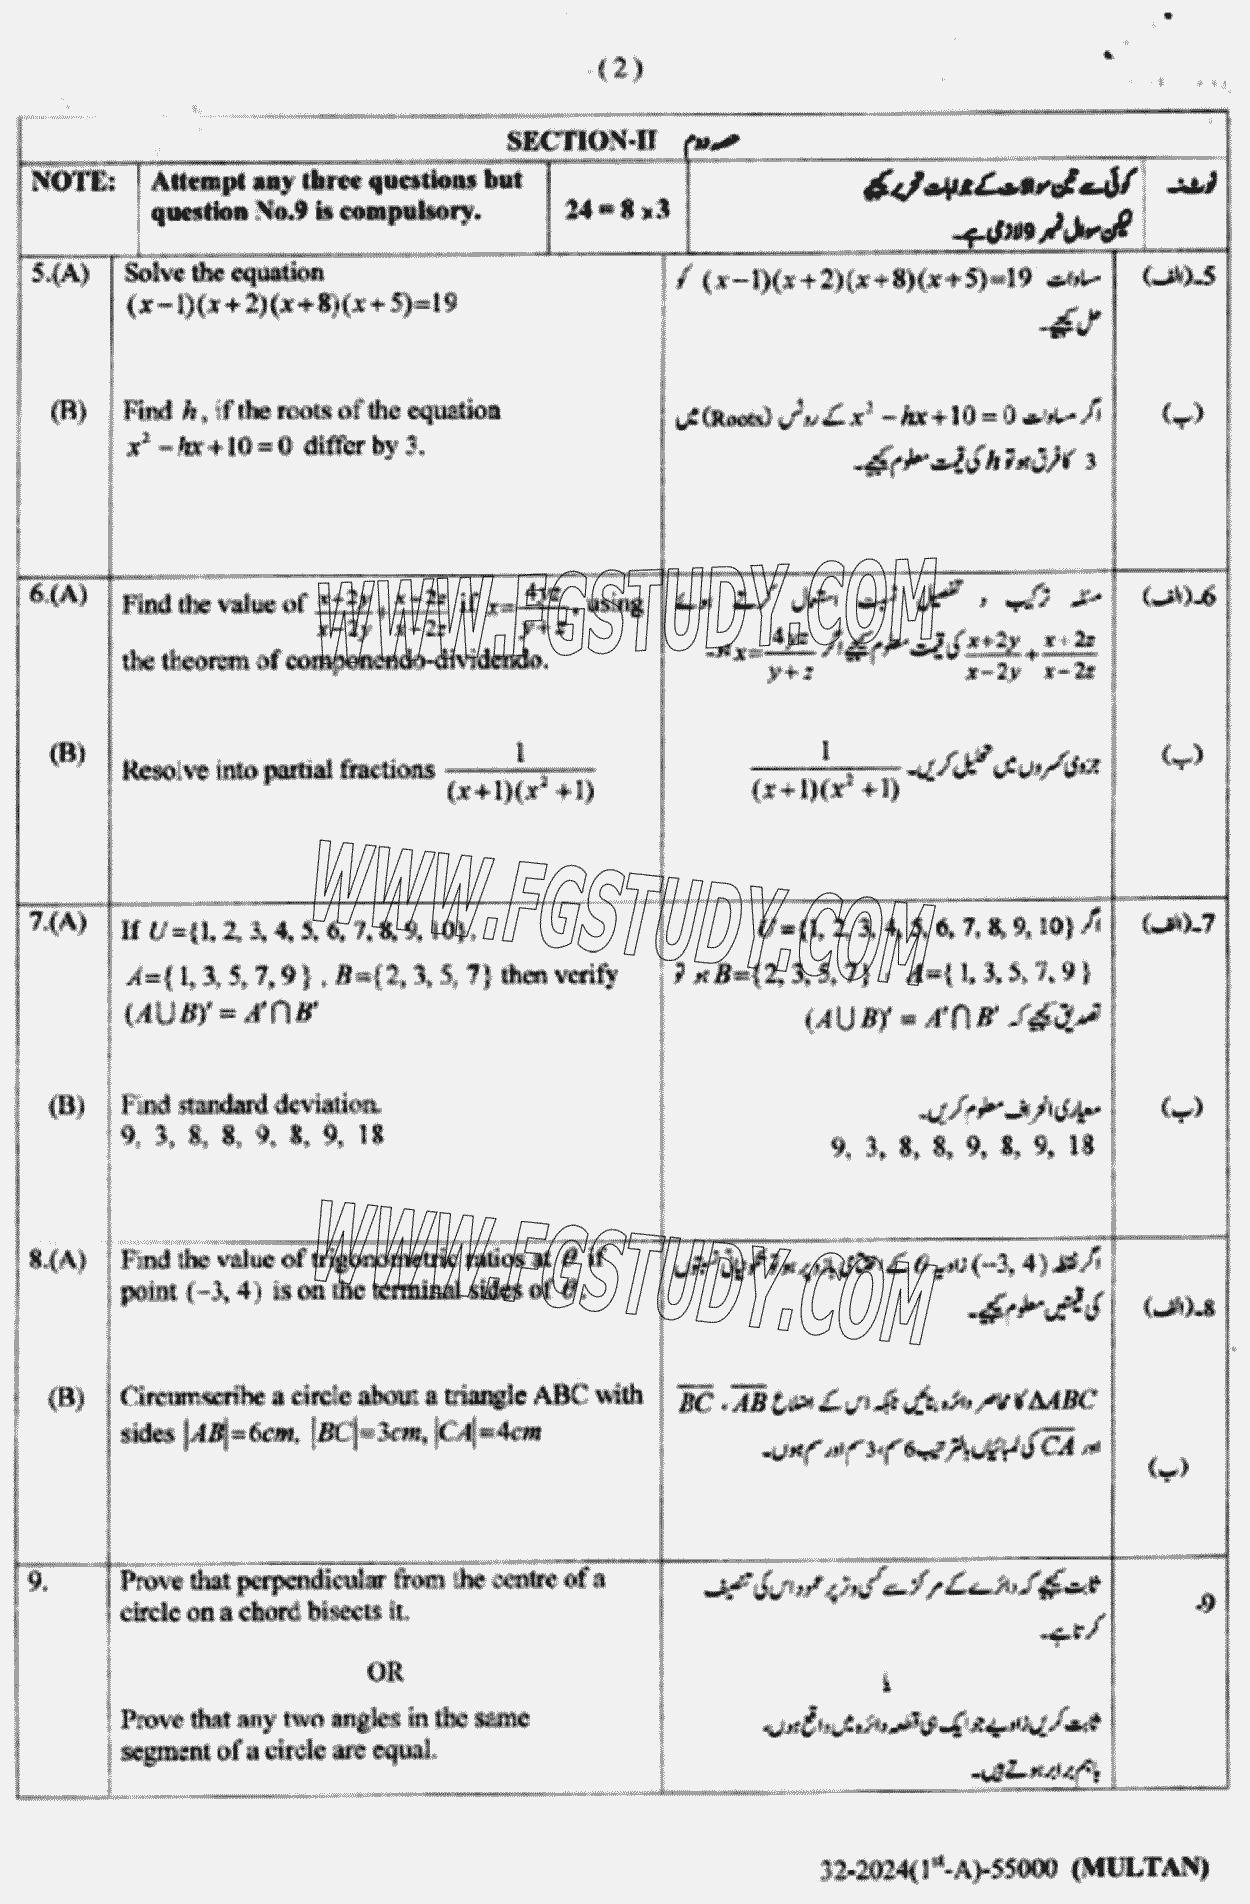 ( 2 )
SECTION-II حصہ دوم
NOTE: Attempt any three questions but
question No.9 is compulsory.
24 = 8 x 3
نوٹ: کوئی سے تین سوالات کے جوابات تحریر کیجئے
لیکن سوال نمبر 9 لازمی ہے۔
5.(A) Solve the equation
(x−1)(x+2)(x+8)(x+5)=19
5۔(الف) مساوات (x−1)(x+2)(x+8)(x+5)=19 کو
حل کیجئے۔
(B) Find h, if the roots of the equation
x² − hx + 10 = 0 differ by 3.
(ب) اگر مساوات x² − hx + 10 = 0 کے روٹس (Roots) میں
3 کا فرق ہو تو h کی قیمت معلوم کیجئے۔
6.(A) Find the value of (x+2y)/(x−2y) + (x+2z)/(x−2z) if x = 4yz/(y+z), using
the theorem of componendo-dividendo.
6۔(الف) مسئلہ ترکیب و تفصیل نسبت استعمال کرتے ہوئے
(x+2y)/(x−2y) + (x+2z)/(x−2z) کی قیمت معلوم کیجئے اگر x = 4yz/(y+z) ہو۔
(B) Resolve into partial fractions 1/((x+1)(x²+1))
(ب) جزوی کسروں میں تحلیل کریں۔ 1/((x+1)(x²+1))
7.(A) If U={1, 2, 3, 4, 5, 6, 7, 8, 9, 10},
A={1, 3, 5, 7, 9}, B={2, 3, 5, 7} then verify
(A∪B)′ = A′∩B′
7۔(الف) اگر U={1, 2, 3, 4, 5, 6, 7, 8, 9, 10}
A={1, 3, 5, 7, 9} , B={2, 3, 5, 7} ہو تو
تصدیق کیجئے کہ (A∪B)′ = A′∩B′
(B) Find standard deviation.
9, 3, 8, 8, 9, 8, 9, 18
(ب) معیاری انحراف معلوم کریں۔
9, 3, 8, 8, 9, 8, 9, 18
8.(A) Find the value of trigonometric ratios at θ if
point (−3, 4) is on the terminal sides of θ.
8۔(الف) اگر نقطہ (−3, 4) زاویہ θ کے اختتامی بازو پر ہو تو تکونیاتی نسبتوں
کی قیمتیں معلوم کیجئے۔
(B) Circumscribe a circle about a triangle ABC with
sides |AB|=6cm, |BC|=3cm, |CA|=4cm
(ب) ΔABC کا محاصر دائرہ بنائیں جبکہ اس کے اضلاع AB ، BC
اور CA کی لمبائیاں بالترتیب 6 سم، 3 سم اور سم ہوں۔
9. Prove that perpendicular from the centre of a
circle on a chord bisects it.
OR
Prove that any two angles in the same
segment of a circle are equal.
9۔ ثابت کیجئے کہ دائرے کے مرکز سے کسی وتر پر عمود اس کی تنصیف
کرتا ہے۔
یا
ثابت کریں زاویے جو ایک ہی قطعہ دائرہ میں واقع ہوں۔
باہم برابر ہوتے ہیں۔
32-2024(1st-A)-55000 (MULTAN)
WWW.FGSTUDY.COM
WWW.FGSTUDY.COM
WWW.FGSTUDY.COM